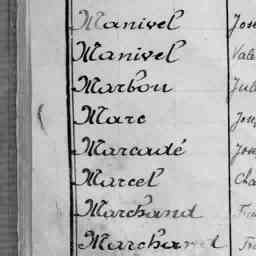 Manivel Jose
Manivel Vale
Marbou Jule
Marc Jose
Marcadé Jose
Marcel Cha
Marchand
Marchand